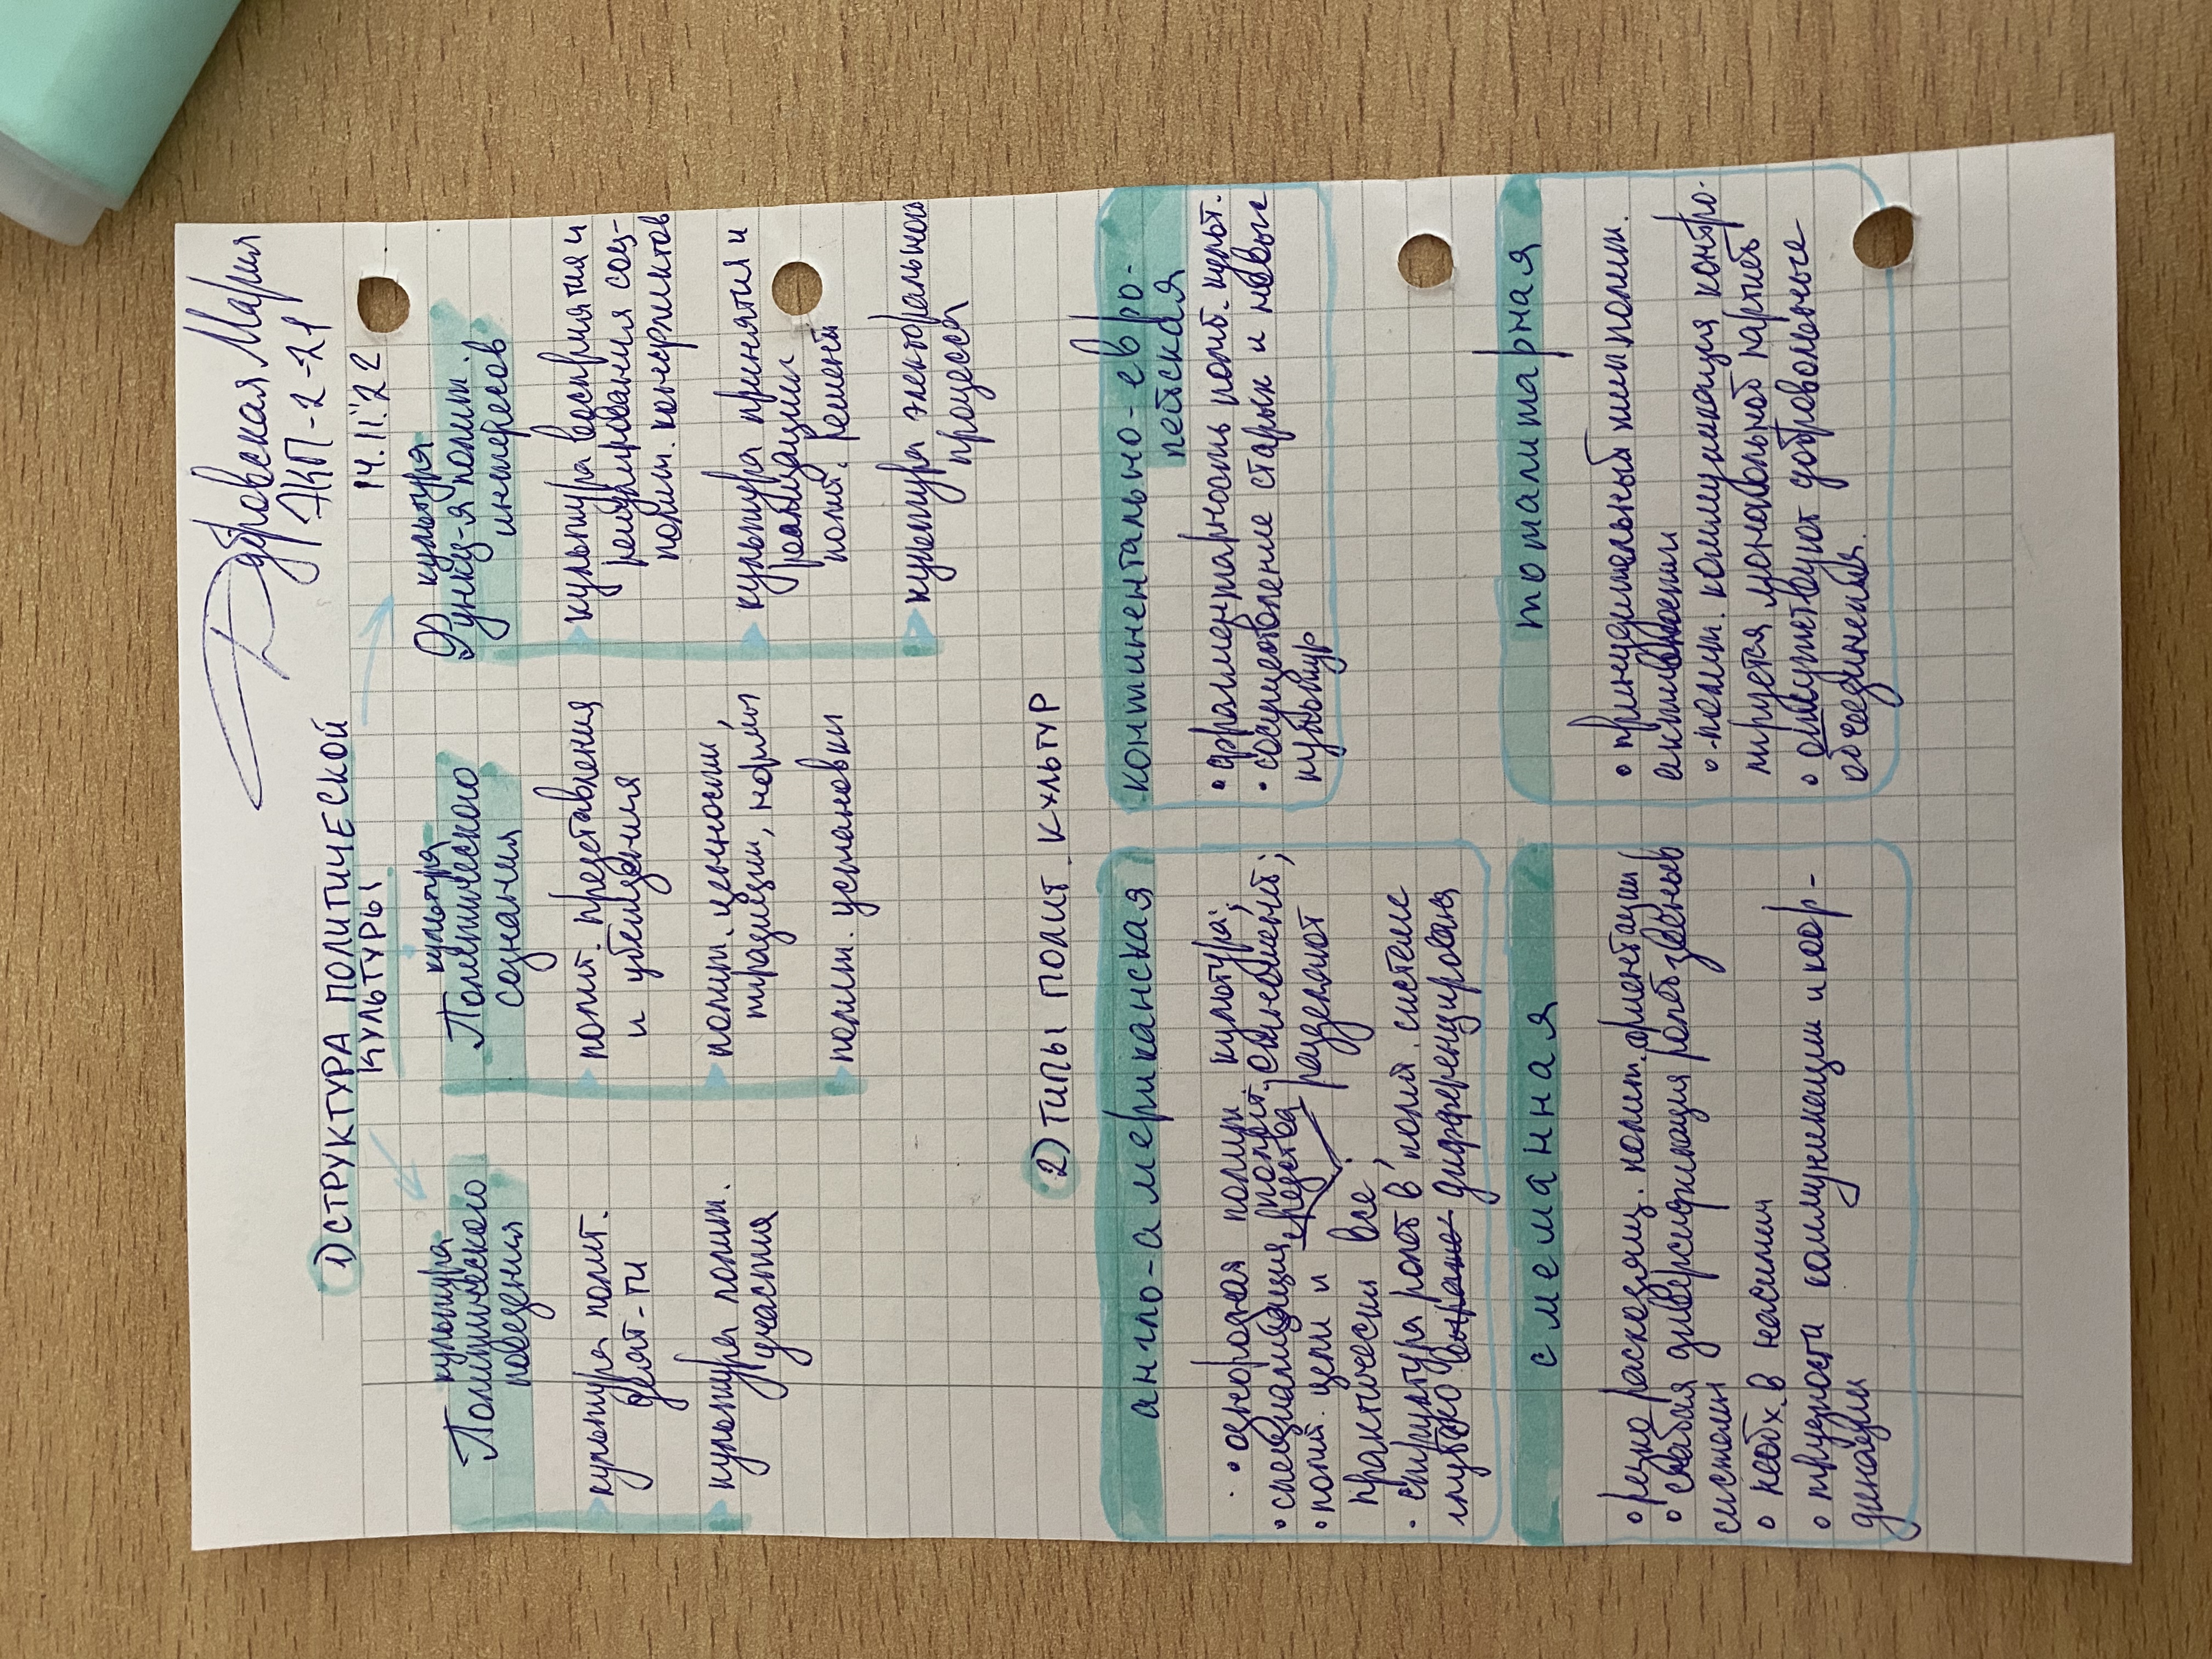 Добровская Мария
ЭКП-2-21
14.11.22
1) СТРУКТУРА ПОЛИТИЧЕСКОЙ
КУЛЬТУРЫ
культура
Политического
поведения
культура полит.
деят-ти
культура полит.
участия
культура
Политического
сознания
полит. представления
и убеждения
полит. ценности
традиции, нормы
полит. установки
культура
Функц-я полит.
интересов
культура восприятия и
регулирования соц-
полит. конфликтов
культура принятия и
реализации
полит. решений
культура электорального
процесса
2) ТИПЫ ПОЛИТ. КУЛЬТУР
англо-американская
• однородная полит. культура;
• специализация полит.
• полит. цели и средства разделяют
практически все
• структура ролей в полит. системе
глубоко выраже дифференцирована
континентально-евро-
пейская
• фрагментарность полит. культ.
• сосуществление старых и новых
культур
смешанная
• резко расходящ. полит. ориентации
• слабая диверсификация ролей звеньев
систем
• необх. в насилии
• трудности коммуникации и коор-
динации
тоталитарная
• принудительный тип полит.
активности
• полит. коммуникация контро-
лируется монопольной партией
• отсутствуют добровольные
объединения.